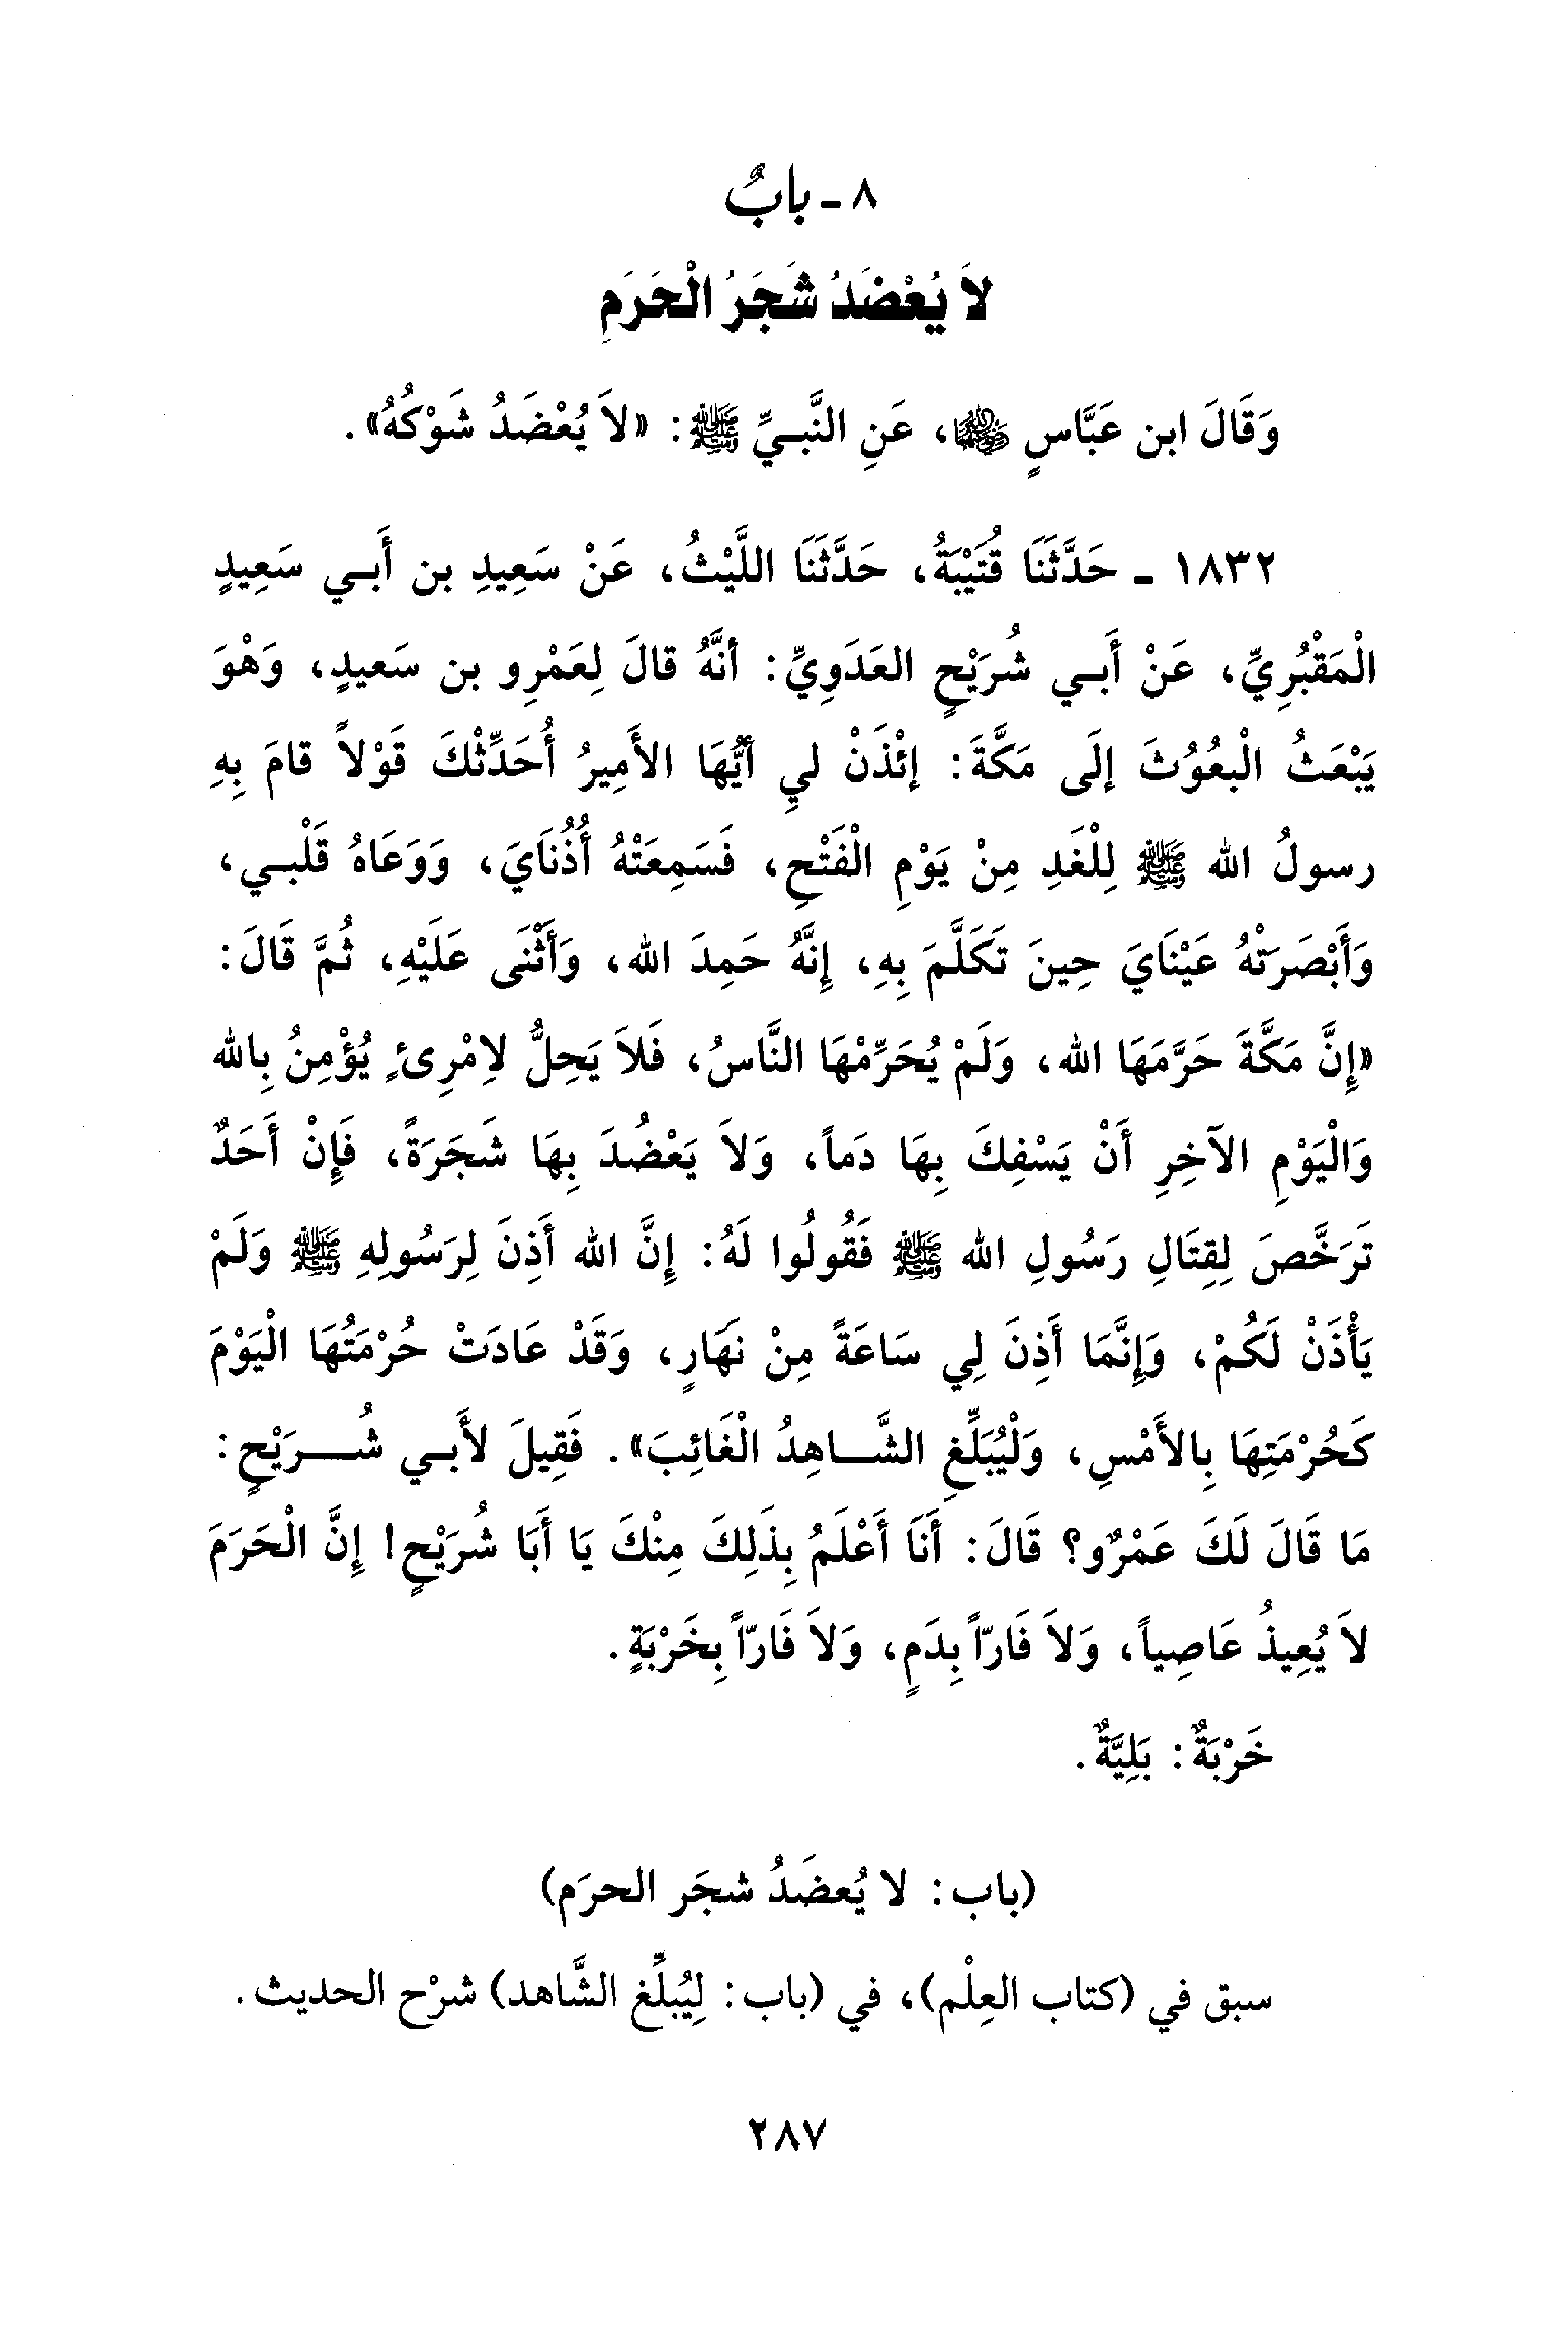 ٨ - بابٌ
لاَ يُعْضَدُ شَجَرُ الْحَرَمِ
وَقَالَ ابن عَبَّاسٍ رضي الله عنهما، عَنِ النَّبِيِّ ﷺ: «لاَ يُعْضَدُ شَوْكُهُ».
١٨٣٢ - حَدَّثَنَا قُتَيْبَةُ، حَدَّثَنَا اللَّيْثُ، عَنْ سَعِيدِ بن أَبي سَعِيدٍ
الْمَقْبُرِيِّ، عَنْ أَبي شُرَيْحٍ العَدَوِيِّ: أنَّهُ قالَ لِعَمْرِو بن سَعيدٍ، وَهْوَ
يَبْعَثُ الْبعُوُثَ إلَى مَكَّةَ: إئْذَنْ ليِ أيُّهَا الأَمِيرُ أُحَدِّثْكَ قَوْلاً قامَ بِهِ
رسولُ الله ﷺ لِلْغَدِ مِنْ يَوْمِ الْفَتْحِ، فَسَمِعَتْهُ أُذُنَايَ، وَوَعَاهُ قَلْبي،
وَأَبْصَرَتْهُ عَيْنَايَ حِينَ تَكَلَّمَ بِهِ، إِنَّهُ حَمِدَ الله، وَأَثْنَى عَلَيْهِ، ثُمَّ قَالَ:
«إِنَّ مَكَّةَ حَرَّمَهَا الله، وَلَمْ يُحَرِّمْهَا النَّاسُ، فَلاَ يَحِلُّ لاِمْرِئٍ يُؤْمِنُ بِالله
وَالْيَوْمِ الآخِرِ أَنْ يَسْفِكَ بِهَا دَماً، وَلاَ يَعْضُدَ بِهَا شَجَرَةً، فَإِنْ أَحَدٌ
تَرَخَّصَ لِقِتَالِ رَسُولِ الله ﷺ فَقُولُوا لَهُ: إِنَّ الله أَذِنَ لِرَسُولِهِ ﷺ وَلَمْ
يَأْذَنْ لَكُمْ، وَإِنَّمَا أَذِنَ لِي سَاعَةً مِنْ نَهَارٍ، وَقَدْ عَادَتْ حُرْمَتُهَا الْيَوْمَ
كَحُرْمَتِهَا بِالأَمْسِ، وَلْيُبَلِّغِ الشَّاهِدُ الْغَائِبَ». فَقِيلَ لأَبي شُرَيْحٍ:
مَا قَالَ لَكَ عَمْرٌو؟ قَالَ: أَنَا أَعْلَمُ بِذَلِكَ مِنْكَ يَا أَبَا شُرَيْحٍ! إِنَّ الْحَرَمَ
لاَ يُعِيذُ عَاصِياً، وَلاَ فَارّاً بِدَمٍ، وَلاَ فَارّاً بِخَرْبَةٍ.
خَرْبَةٌ: بَلِيَّةٌ.
(باب: لا يُعضَدُ شجَر الحرَم)
سبق في (كتاب العِلْم)، في (باب: لِيُبلِّغ الشَّاهد) شرْح الحديث.
٢٨٧